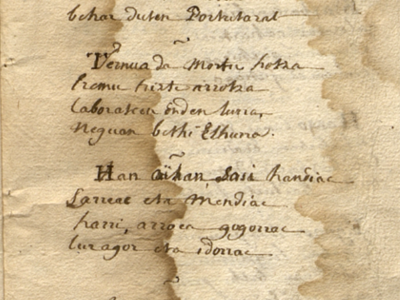 behar duten Portutarat
Ternua da Mortu hotza
Eremu triste arrotza
laboratcen ezden lurra,
Neguan bethi Elhurra.
Han oihan, Sasi handiac
Larreac eta Mendiac
harri, arroca gogorrac
lur agor eta idorrac